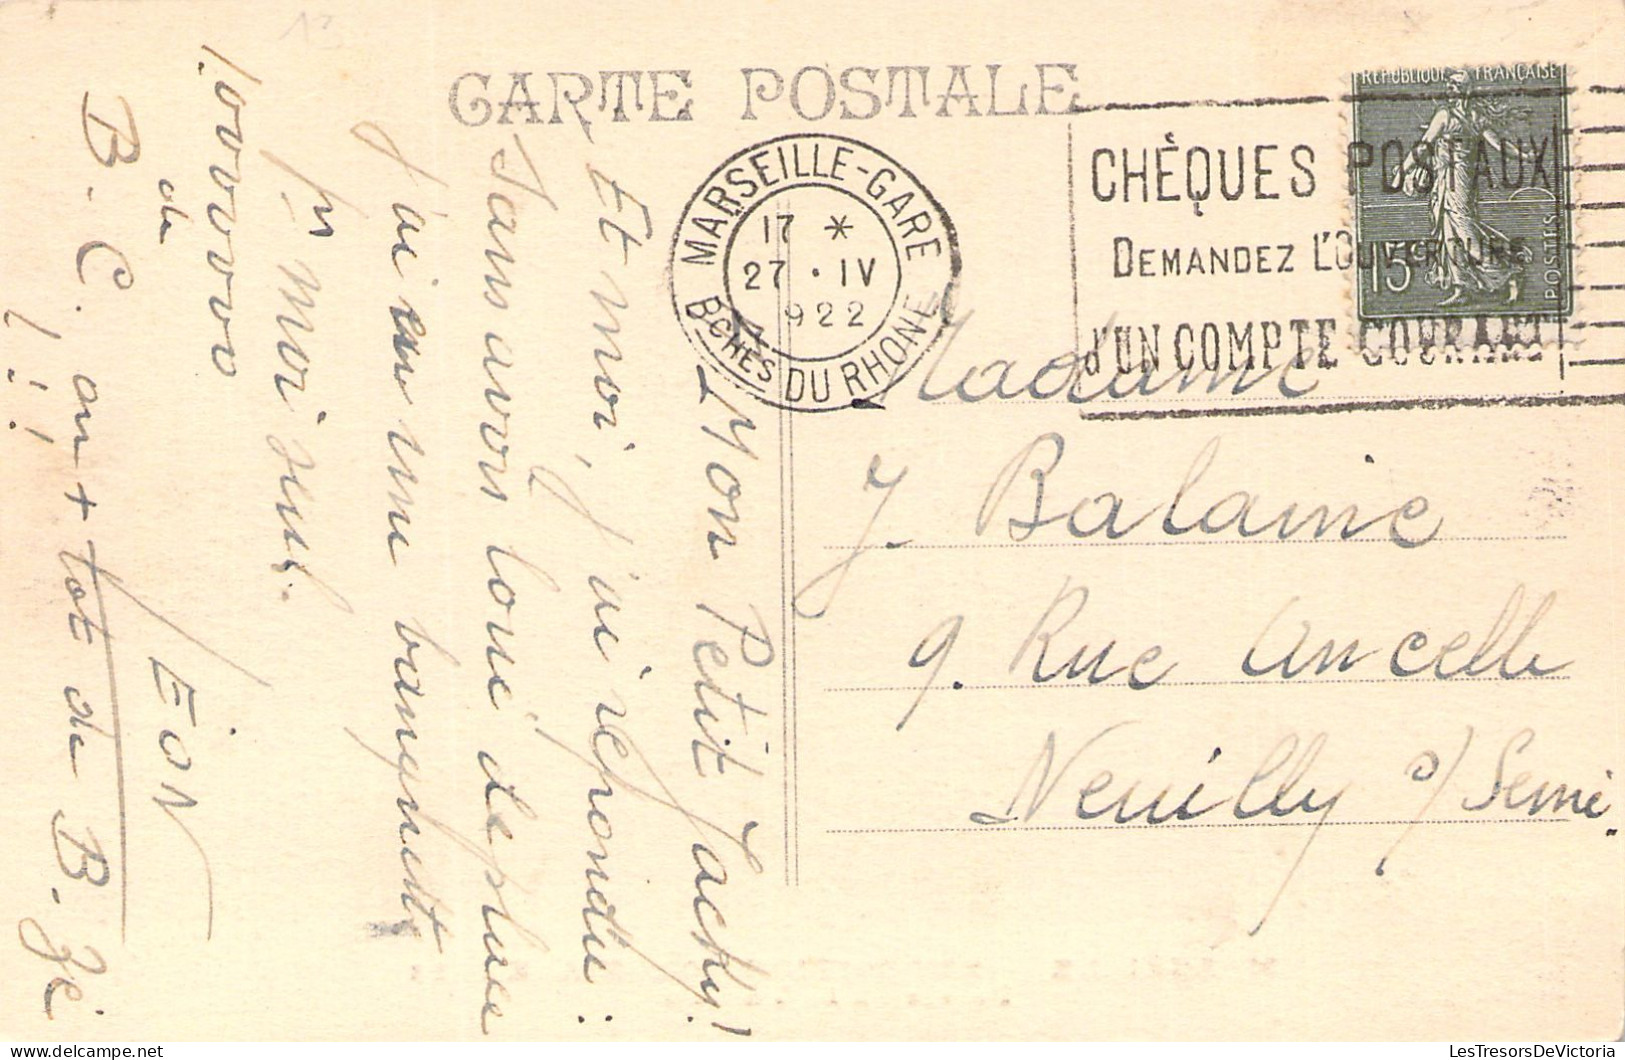 CARTE POSTALE
MARSEILLE-GARE
17 *
27 · IV
922
BCHES DU RHONE
CHÈQUES POSTAUX
DEMANDEZ L'OUVERTURE
D'UN COMPTE COURANT
REPUBLIQUE FRANÇAISE
15c
POSTES
Madame
J. Balaine
9. Rue Ancelle
Neuilly s/ Seine.
Mon Petit Jacky!
Et moi, j'ai répondu :
Sans avoir loué des
j'ai eu une banquette
pr moi seul.
1.000000
de
B. C. au + tot de B. Zé
! ! !
LesTresorsDeVictoria